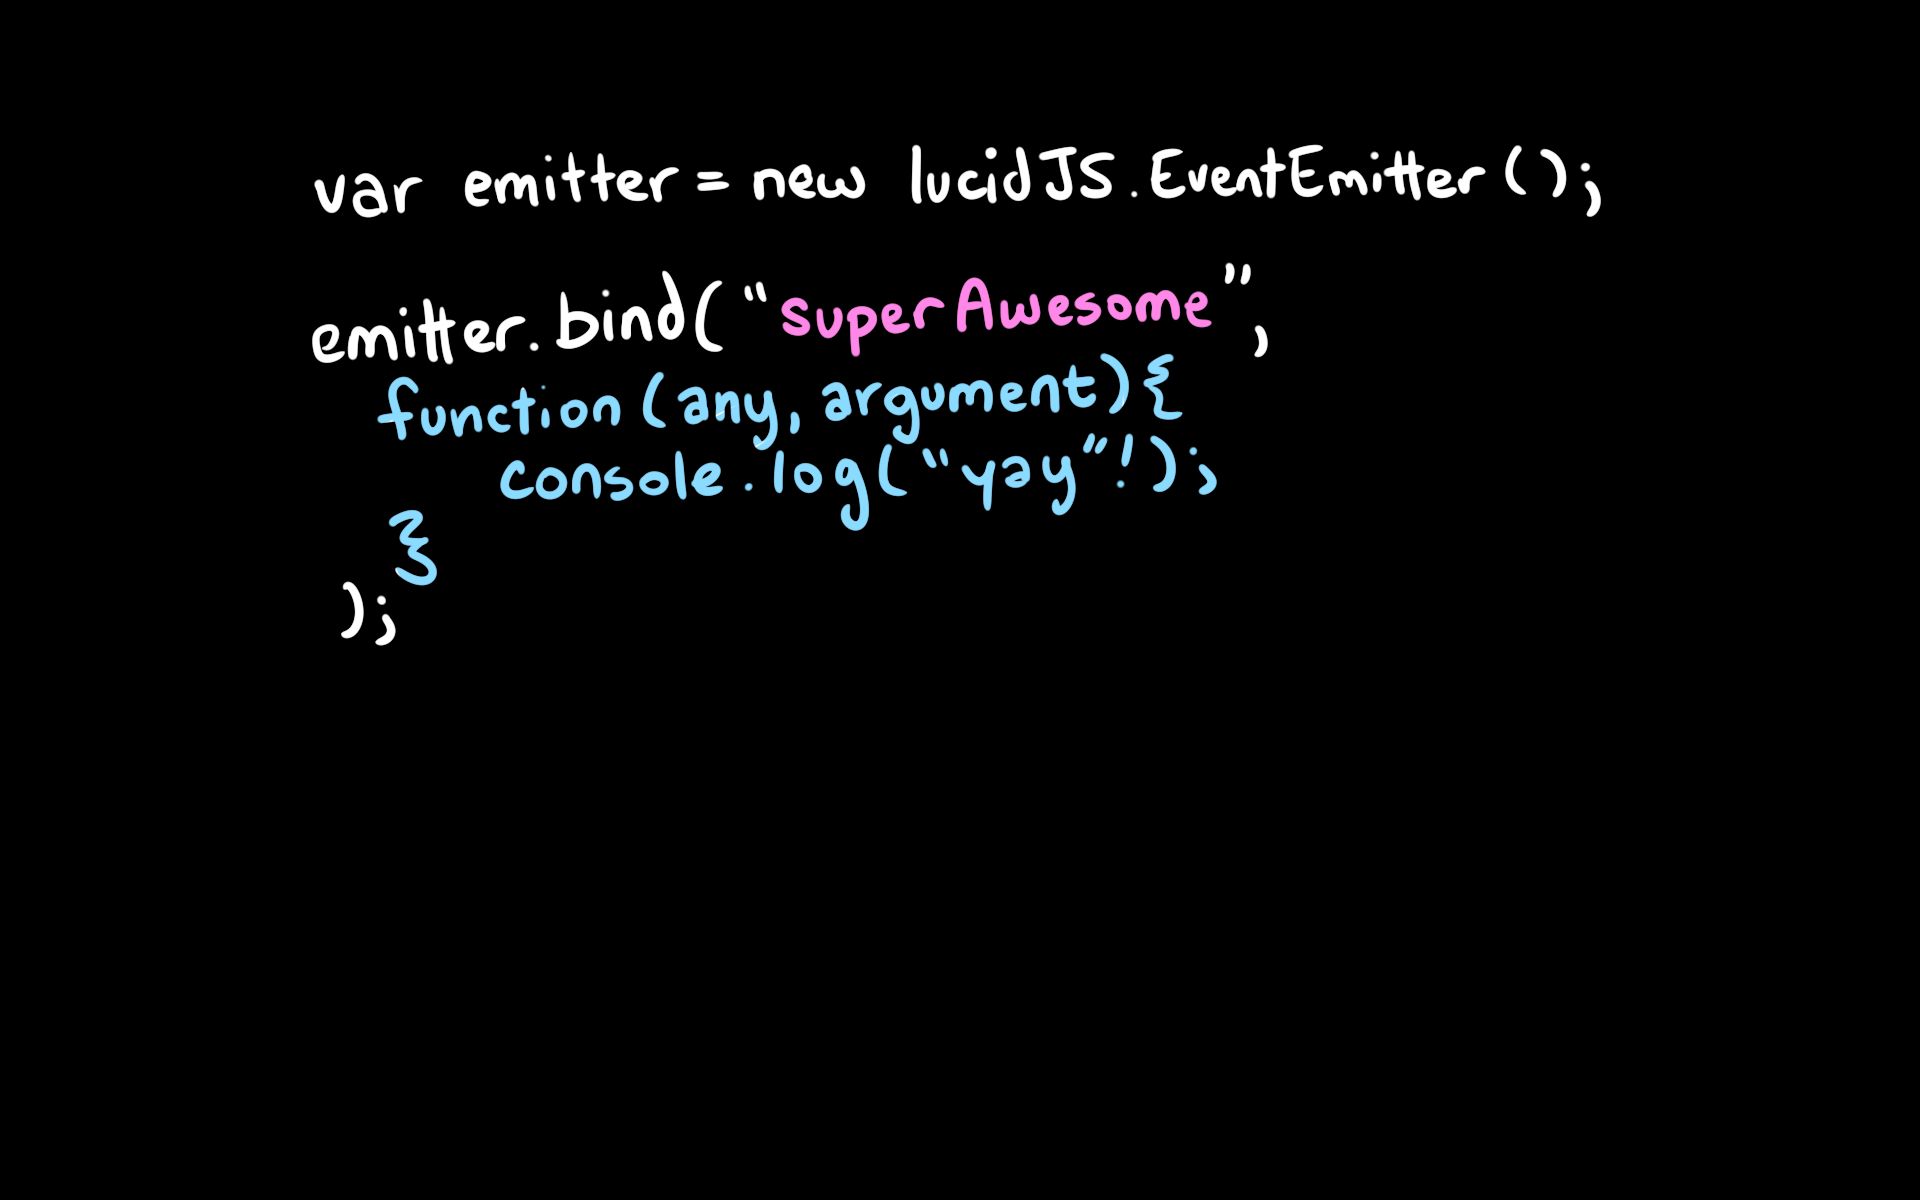 var emitter = new lucidJS.EventEmitter();
emitter.bind("superAwesome",
function(any, argument){
console.log("yay"!);
}
);